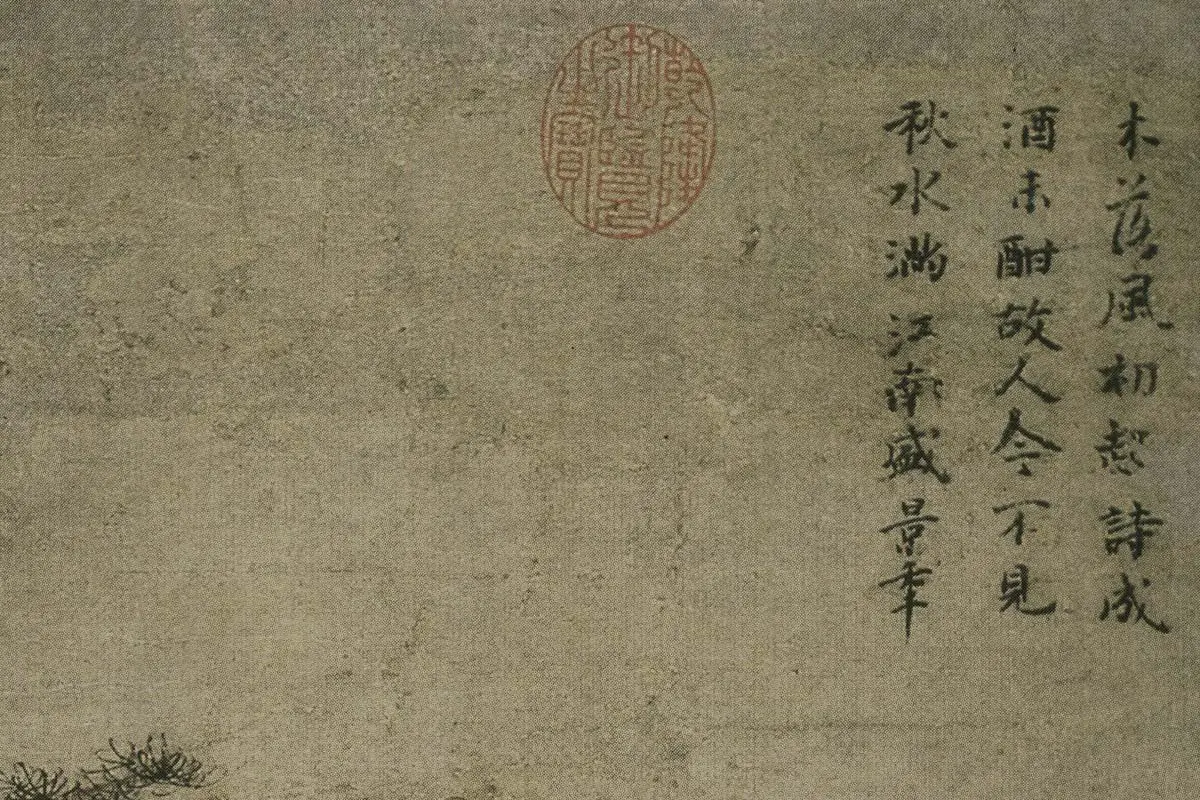 木落風初起詩成
酒未酣故人今不見
秋水滿江南盛景年
乾隆
御覽
之寶